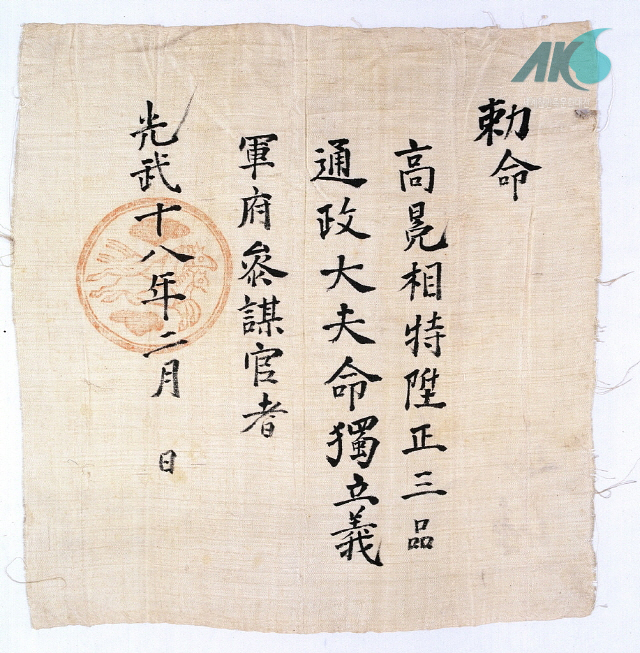 勅命
高晃相特陞正三品
通政大夫命獨立義
軍府叅謀官者
光武十八年二月 日
AK